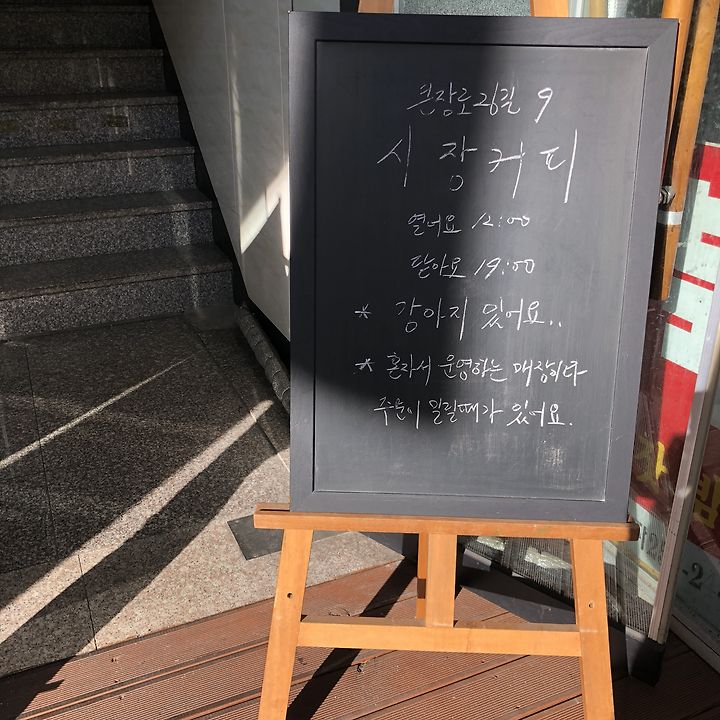 큰장로26길 9
시장커피
열어요 12:00
닫아요 19:00
* 강아지 있어요..
* 혼자서 운영하는 매장이라
주문이 밀릴때가 있어요.